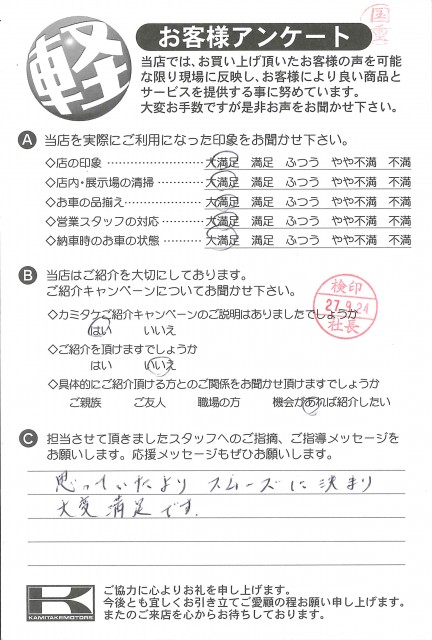 軽
お客様アンケート
当店では、お買い上げ頂いたお客様の声を可能
な限り現場に反映し、お客様により良い商品と
サービスを提供する事に努めています。
大変お手数ですが是非お声をお聞かせ下さい。
A 当店を実際にご利用になった印象をお聞かせ下さい。
◇店の印象 ………………… 大満足 満足 ふつう やや不満 不満
◇店内・展示場の清掃 ……… 大満足 満足 ふつう やや不満 不満
◇お車の品揃え …………… 大満足 満足 ふつう やや不満 不満
◇営業スタッフの対応 ……… 大満足 満足 ふつう やや不満 不満
◇納車時のお車の状態 ……… 大満足 満足 ふつう やや不満 不満
B 当店はご紹介を大切にしております。
ご紹介キャンペーンについてお聞かせ下さい。
◇カミタケご紹介キャンペーンのご説明はありましたでしょうか
はい いいえ
検印
27.9.24
社長
◇ご紹介を頂けますでしょうか
はい いいえ
◇具体的にご紹介頂ける方とのご関係をお聞かせ頂けますでしょうか
ご親族 ご友人 職場の方 機会があれば紹介したい
C 担当させて頂きましたスタッフへのご指摘、ご指導メッセージを
お願いします。応援メッセージもぜひお願いします。
思っていたより スムーズに決まり
大変満足です。
K
KAMITAKEMOTORS
ご協力に心よりお礼を申し上げます。
今後とも宜しくお引き立てご愛顧の程お願い申し上げます。
またのご来店を心からお待ちしております。